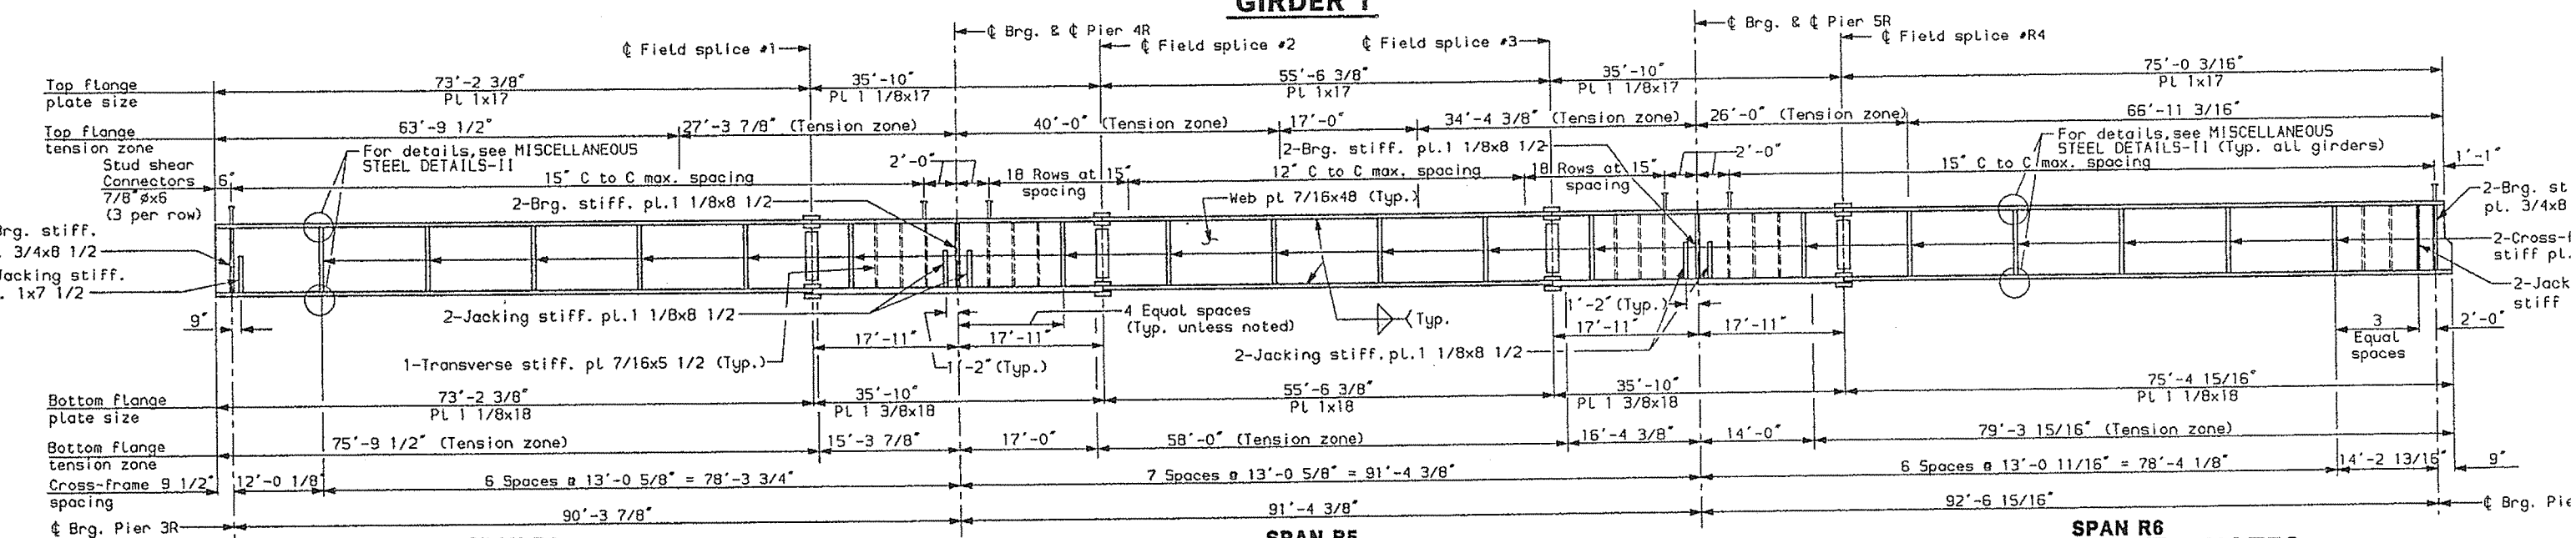 GIRDER 1
℄ Brg. & ℄ Pier 4R
℄ Brg. & ℄ Pier 5R
℄ Field splice #1
℄ Field splice #2
℄ Field splice #3
℄ Field splice #R4
Top flange
plate size
73'-2 3/8"
Pl 1x17
35'-10"
Pl 1 1/8x17
55'-6 3/8"
Pl 1x17
35'-10"
Pl 1 1/8x17
75'-0 3/16"
Pl 1x17
Top flange
tension zone
63'-9 1/2"
27'-3 7/8" (Tension zone)
40'-0" (Tension zone)
17'-0"
34'-4 3/8" (Tension zone)
26'-0" (Tension zone)
66'-11 3/16"
For details, see MISCELLANEOUS
STEEL DETAILS-II
For details, see MISCELLANEOUS
STEEL DETAILS-II (Typ. all girders)
Stud shear
Connectors
7/8"øx6
(3 per row)
6"
15" C to C max. spacing
2'-0"
18 Rows at 15"
spacing
12" C to C max. spacing
18 Rows at 15"
spacing
2'-0"
15" C to C max. spacing
1'-1"
2-Brg. stiff. pl.1 1/8x8 1/2
2-Brg. stiff. pl.1 1/8x8 1/2
Web pl 7/16x48 (Typ.)
2-Brg. st
pl. 3/4x8
rg. stiff.
3/4x8 1/2
acking stiff.
. 1x7 1/2
2-Cross-
stiff pl.
2-Jack
stiff
9"
2-Jacking stiff. pl.1 1/8x8 1/2
4 Equal spaces
(Typ. unless noted)
Typ.
1'-2" (Typ.)
17'-11"
17'-11"
17'-11"
17'-11"
3
Equal
spaces
2'-0"
1-Transverse stiff. pl 7/16x5 1/2 (Typ.)
1'-2" (Typ.)
2-Jacking stiff. pl.1 1/8x8 1/2
Bottom flange
plate size
73'-2 3/8"
Pl 1 1/8x18
35'-10"
Pl 1 3/8x18
55'-6 3/8"
Pl 1x18
35'-10"
Pl 1 3/8x18
75'-4 15/16"
Pl 1 1/8x18
Bottom flange
tension zone
75'-9 1/2" (Tension zone)
15'-3 7/8"
17'-0"
58'-0" (Tension zone)
16'-4 3/8"
14'-0"
79'-3 15/16" (Tension zone)
Cross-frame
spacing
9 1/2"
12'-0 1/8"
6 Spaces @ 13'-0 5/8" = 78'-3 3/4"
7 Spaces @ 13'-0 5/8" = 91'-4 3/8"
6 Spaces @ 13'-0 11/16" = 78'-4 1/8"
14'-2 13/16"
9"
℄ Brg. Pier 3R
90'-3 7/8"
91'-4 3/8"
92'-6 15/16"
℄ Brg. Pie
SPAN R5
SPAN R6